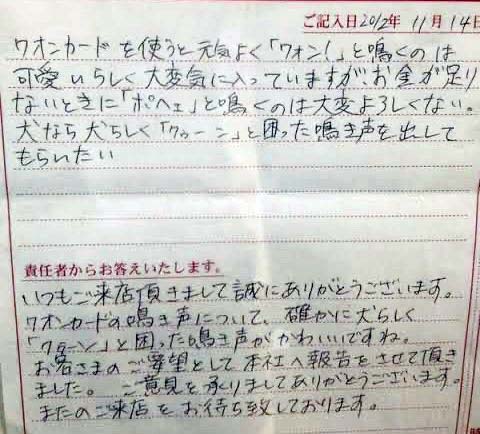 ご記入日2012年 11月14日
ワオンカードを使うと元気よく「ワォン!」と鳴くのは
可愛いらしく大変気に入っていますがお金が足り
ないときに「ポヘェ」と鳴くのは大変よろしくない。
犬なら犬らしく「クゥーン」と困った鳴き声を出して
もらいたい
責任者からお答えいたします。
いつもご来店頂きまして誠にありがとうございます。
ワオンカードの鳴き声について、確かに犬らしく
「クゥーン」と困った鳴き声がかわいいですね。
お客さまのご要望として本社へ報告をさせて頂き
ました。ご意見を承りましてありがとうございます。
またのご来店をお待ち致しております。